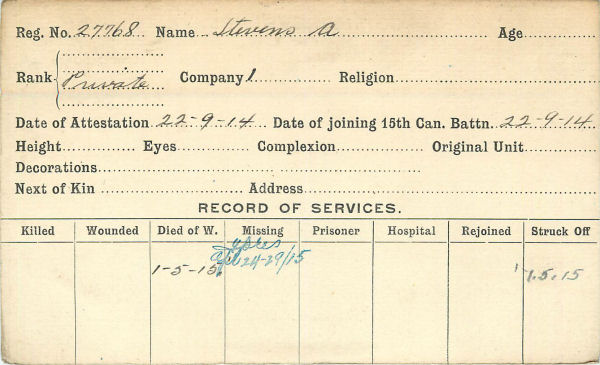 Reg. No. 27768 Name Stevens A Age
Rank Private Company 1 Religion
Date of Attestation 22-9-14 Date of joining 15th Can. Battn. 22-9-14
Height Eyes Complexion Original Unit
Decorations
Next of Kin Address
RECORD OF SERVICES.
Killed Wounded Died of W. Missing Prisoner Hospital Rejoined Struck Off
Ypres
1-5-15 24-29/15 1.5.15